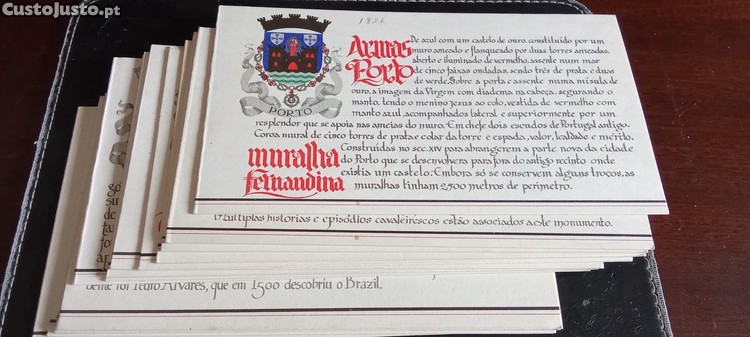 CustoJusto.pt
1826
Armas
Porto
De azul com um castelo de ouro, constituído por um
muro ameado e flanqueado por duas torres ameadas,
aberto e iluminado de vermelho, assente num mar
de cinco faixas ondadas, sendo três de prata e duas
de verde. Sobre a porta e assente numa mísula de
ouro, a imagem da Virgem com diadema na cabeça, segurando o
manto, tendo o menino Jesus ao colo, vestida de vermelho com
manto azul, acompanhados lateral e superiormente por um
resplendor que se apoia nas ameias do muro. Em chefe dois escudos de Portugal antigo.
Coroa mural de cinco torres de prata e colar da torre e espada, valor, lealdade e mérito.
PORTO
muralha
Fernandina
Construídas no sec. XIV para abrangerem a parte nova da cidade
do Porto que se desenvolvera para fora do antigo recinto onde
existia um castelo. Embora só se conservem alguns troços, as
muralhas tinham 2.500 metros de perímetro.
Múltiplas histórias e episódios cavaleirescos estão associados a este monumento.
dente foi Pedro Álvares, que em 1500 descobriu o Brazil.